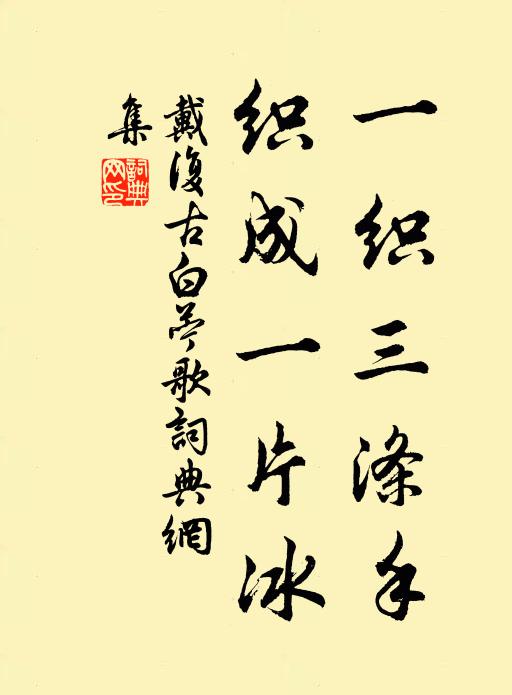 一织三涤手
织成一片冰
戴復古白苎歌詞典網
集
詞典
网印